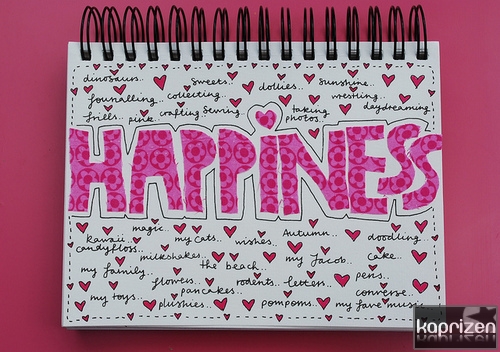 dinosaurs.. sweets.. dollies.. sunshine..
journalling.. collecting.. wrestling..
frills.. pink.. crafting sewing taking photos.. daydreaming
HAPPINESS
kawaii.. magic.. my cats.. wishes.. Autumn.. doodling..
candyfloss.. milkshakes.. the beach.. my Jacob.. cake..
my family.. flowers.. rodents.. letters.. pens..
my toys.. pancakes.. plushies.. pompoms.. converse..
my fave music
kaprizen